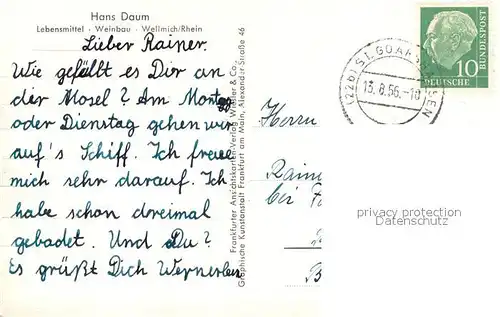 Hans Daum
Lebensmittel · Weinbau · Wellmich/Rhein
Lieber Rainer.
Wie gefällt es Dir an
der Mosel? Am Montag
oder Dienstag gehen wir
auf's Schiff. Ich freue
mich sehr darauf. Ich
habe schon dreimal
gebadet. Und Du?
Es grüßt Dich Wernerlein
Frankfurter Ansichtskarten-Verlag & Co.,
Graphische Kunstanstalt Frankfurt am Main, Alexander-Straße 46
(22b) ST. GOARSHAUSEN
13.8.56.-18
10
DEUTSCHE
BUNDESPOST
Herrn
Rain
bei
privacy protection
Datenschutz